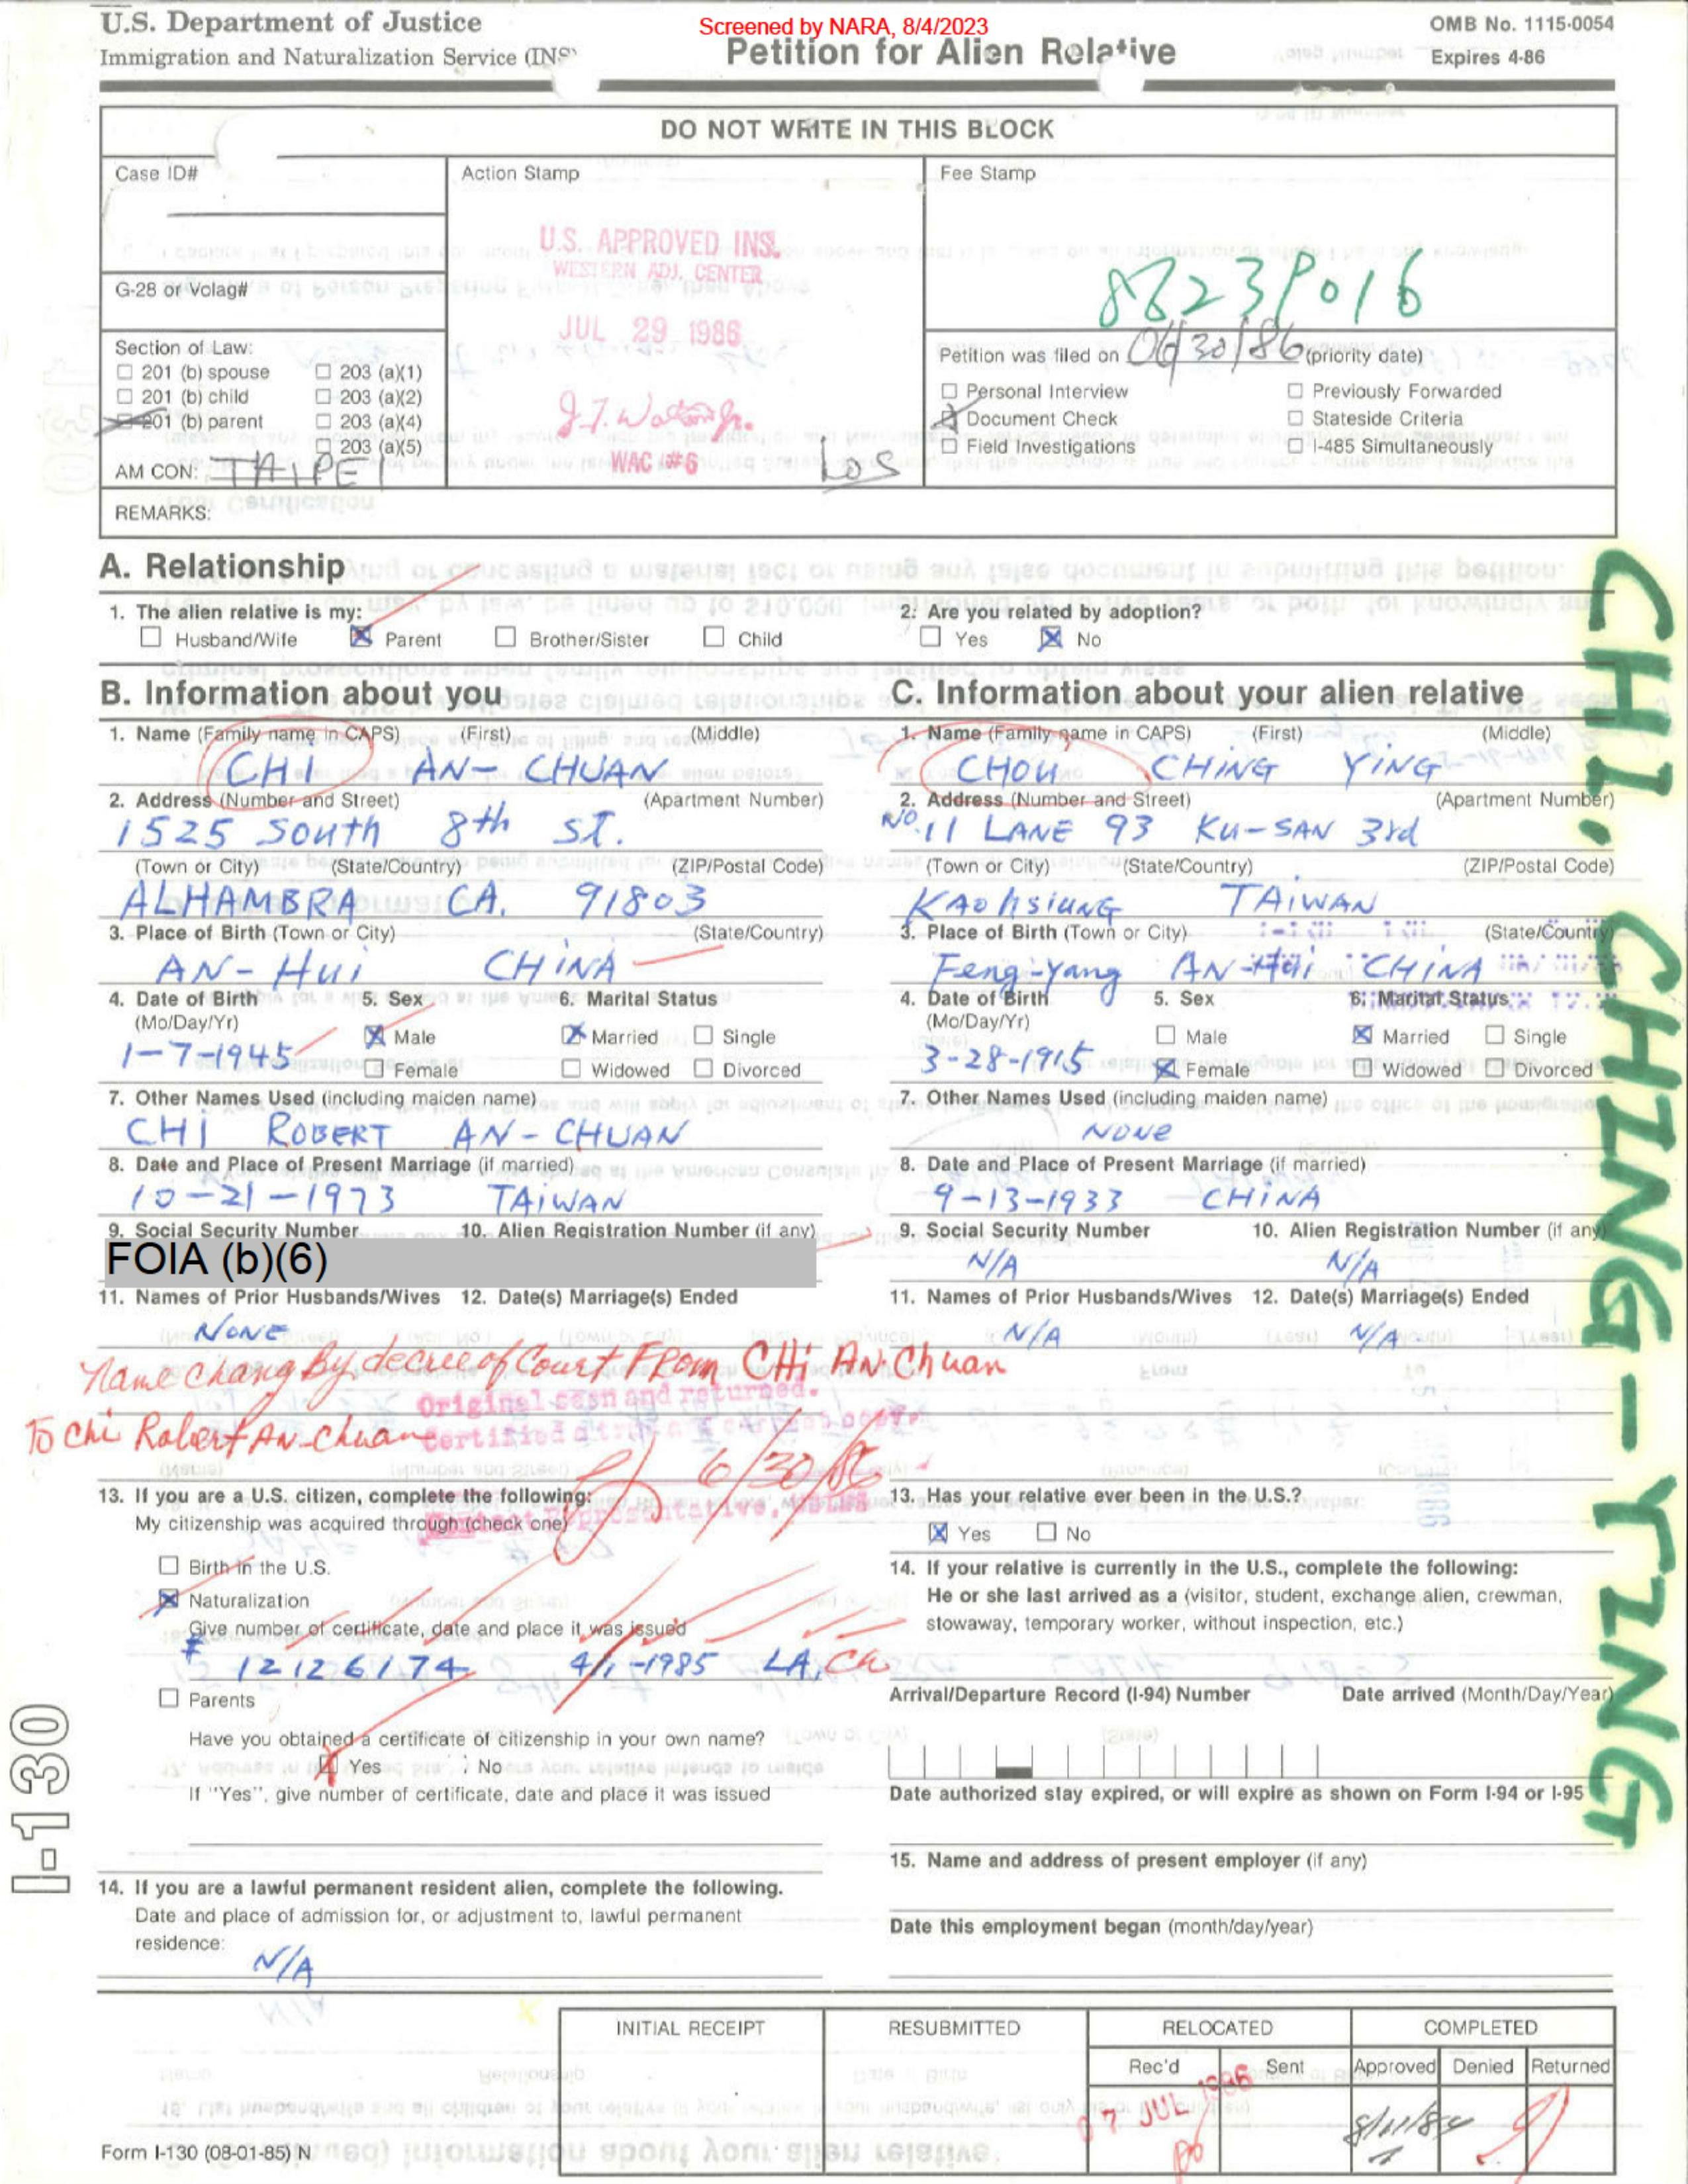 U.S. Department of Justice
Immigration and Naturalization Service (INS)
Screened by NARA, 8/4/2023
Petition for Alien Relative
OMB No. 1115-0054
Expires 4-86
DO NOT WRITE IN THIS BLOCK
Case ID#
Action Stamp
Fee Stamp
U.S. APPROVED INS.
WESTERN ADJ. CENTER
JUL 29 1986
WAC #6
G-28 or Volag#
Section of Law:
201 (b) spouse 203 (a)(1)
201 (b) child 203 (a)(2)
201 (b) parent 203 (a)(4)
203 (a)(5)
AM CON: TAIPEI
LOS
Petition was filed on 06/30/86 (priority date)
Personal Interview Previously Forwarded
Document Check Stateside Criteria
Field Investigations I-485 Simultaneously
REMARKS:
A. Relationship
1. The alien relative is my:
Husband/Wife Parent Brother/Sister Child
2. Are you related by adoption?
Yes No
B. Information about you
1. Name (Family name in CAPS) (First) (Middle)
CHI AN-CHUAN
2. Address (Number and Street) (Apartment Number)
1525 South 8th ST.
(Town or City) (State/Country) (ZIP/Postal Code)
ALHAMBRA CA. 91803
3. Place of Birth (Town or City) (State/Country)
AN-Hui CHINA
4. Date of Birth (Mo/Day/Yr) 5. Sex 6. Marital Status
1-7-1945
Male Married Single
Female Widowed Divorced
7. Other Names Used (including maiden name)
CHI ROBERT AN-CHUAN
8. Date and Place of Present Marriage (if married)
10-21-1973 TAIWAN
9. Social Security Number 10. Alien Registration Number (if any)
FOIA (b)(6)
11. Names of Prior Husbands/Wives 12. Date(s) Marriage(s) Ended
NONE
Name chang By decree of Court FROM CHi AN-Chuan
To Chi Robert AN-Chuan
Original seen and returned.
Certified a true and correct copy.
6/30/86
Contact Representative,
13. If you are a U.S. citizen, complete the following:
My citizenship was acquired through (check one)
Birth in the U.S.
Naturalization
Give number of certificate, date and place it was issued
# 12126174 4/1-1985 LA, Ca
Parents
Have you obtained a certificate of citizenship in your own name?
Yes No
If "Yes", give number of certificate, date and place it was issued
14. If you are a lawful permanent resident alien, complete the following.
Date and place of admission for, or adjustment to, lawful permanent
residence:
N/A
C. Information about your alien relative
1. Name (Family name in CAPS) (First) (Middle)
CHOU CHING YING
2. Address (Number and Street) (Apartment Number)
NO. 11 LANE 93 KU-SAN 3rd
(Town or City) (State/Country) (ZIP/Postal Code)
KAOhsiUNG TAIWAN
3. Place of Birth (Town or City) (State/Country)
Feng-Yang AN-Hui CHINA
4. Date of Birth (Mo/Day/Yr) 5. Sex 6. Marital Status
3-28-1915
Male Married Single
Female Widowed Divorced
7. Other Names Used (including maiden name)
NONE
8. Date and Place of Present Marriage (if married)
9-13-1933 CHINA
9. Social Security Number 10. Alien Registration Number (if any)
N/A N/A
11. Names of Prior Husbands/Wives 12. Date(s) Marriage(s) Ended
N/A N/A
13. Has your relative ever been in the U.S.?
Yes No
14. If your relative is currently in the U.S., complete the following:
He or she last arrived as a (visitor, student, exchange alien, crewman,
stowaway, temporary worker, without inspection, etc.)
Arrival/Departure Record (I-94) Number Date arrived (Month/Day/Year)
Date authorized stay expired, or will expire as shown on Form I-94 or I-95
15. Name and address of present employer (if any)
Date this employment began (month/day/year)
CHI, CHING-YING
I-130
INITIAL RECEIPT RESUBMITTED RELOCATED COMPLETED
Rec'd Sent Approved Denied Returned
07 JUL 1986
Form I-130 (08-01-85) N